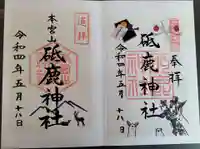 奉拝
砥鹿神社
令和四年五月十八日
遥拝
本宮山
砥鹿神社
令和四年五月十八日